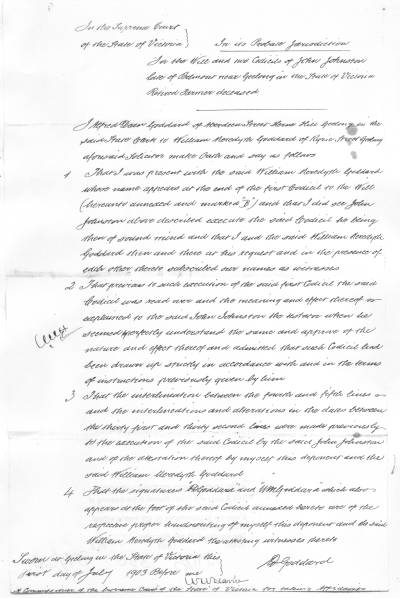 In the Supreme Court
of the State of Victoria } In its Probate Jurisdiction
In the Will and two Codicils of John Johnston
late of Belmont near Geelong in the State of Victoria
Retired Farmer deceased
I Alfred Goddard of Aberdeen Street Herne Hill Geelong in the
said State Clerk to William Meredyth Goddard of Ryrie Street Geelong
aforesaid Solicitor make Oath and say as follows
1 That I was present with the said William Meredyth Goddard
whose name appears at the end of the first Codicil to the Will
(hereunto annexed and marked "B") and that I did see John
Johnston above described execute the said Codicil he being
then of sound mind and that I and the said William Meredyth
Goddard then and there at his request and in the presence of
each other thereto subscribed our names as witnesses
2 That previous to such execution of the said first Codicil the said
Codicil was read over and the meaning and effect thereof
explained to the said John Johnston the testator when he
seemed perfectly understand the same and approve of the
nature and effect thereof and admitted that such Codicil had
been drawn up strictly in accordance with and in the terms
of instructions previously given by him
3 That the interlineation between the fourth and fifth lines
and the interlineations and alterations in the dates between
the thirty first and thirty second lines were made previously
to the execution of the said Codicil by the said John Johnston
and of the attestation thereof by myself this deponent and the
said William Meredyth Goddard
4 That the signatures "Goddard" and "WM Goddard" which also
appear at the foot of the said Codicil annexed hereto are of the
respective proper handwriting of myself this deponent and the said
William Meredyth Goddard the attesting witnesses thereto
Sworn at Geelong in the State of Victoria this
first day of July 1903 Before me
Goddard
A Commissioner of the Supreme Court of the State of Victoria for taking Affidavits